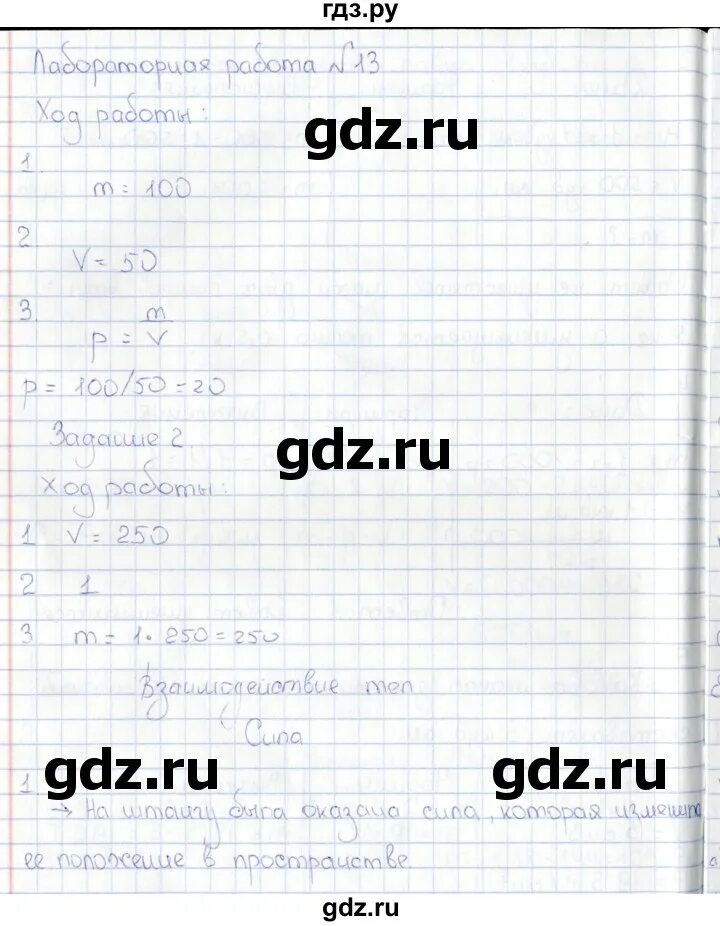 гдз.ру
Лабораторная работа №13
Ход работы:
gdz.ru
1.
m = 100
2
V = 50
3.
p = m/V
p = 100/50 = 20
Задание 2.
gdz.ru
Ход работы:
1 V = 250
2 1
3 m = 1 · 250 = 250
Взаимодействие тел
Сила
gdz.ru
gdz.ru
1.
→ На штангу была оказана сила, которая изменит
ее положение в пространстве.
gdz.ru